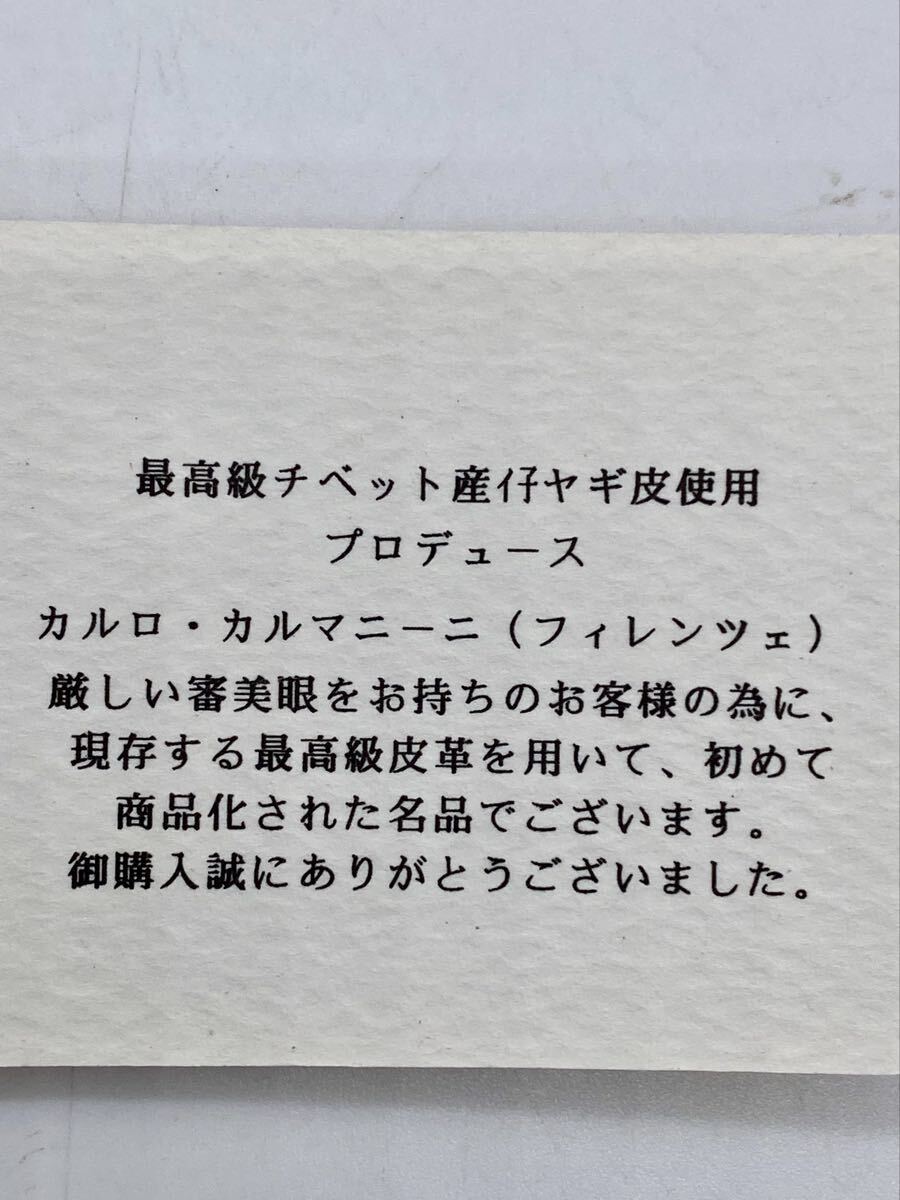 最高級チベット産仔ヤギ皮使用
プロデュース
カルロ・カルマニーニ（フィレンツェ）
厳しい審美眼をお持ちのお客様の為に、
現存する最高級皮革を用いて、初めて
商品化された名品でございます。
御購入誠にありがとうございました。